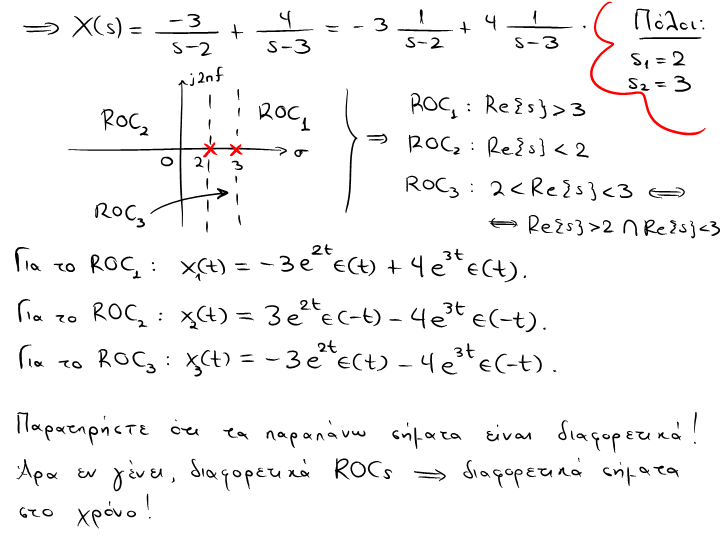 ⟹ X(s) = -3/(s-2) + 4/(s-3) = -3 1/(s-2) + 4 1/(s-3) .
Πόλοι:
s₁ = 2
s₂ = 3
j2πf
ROC₂
ROC₁
0 2 3 σ
ROC₃
⟹
ROC₁ : Re{s} > 3
ROC₂ : Re{s} < 2
ROC₃ : 2 < Re{s} < 3 ⟺
⟺ Re{s} > 2 ∩ Re{s} < 3
Για το ROC₁ : x₁(t) = -3e^{2t}ε(t) + 4e^{3t}ε(t).
Για το ROC₂ : x₂(t) = 3e^{2t}ε(-t) - 4e^{3t}ε(-t).
Για το ROC₃ : x₃(t) = -3e^{2t}ε(t) - 4e^{3t}ε(-t).
Παρατηρήστε ότι τα παραπάνω σήματα είναι διαφορετικά!
Άρα εν γένει, διαφορετικά ROCs ⟹ διαφορετικά σήματα
στο χρόνο!